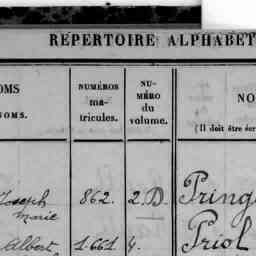 RÉPERTOIRE ALPHABET
OMS
NOMS.
NUMÉROS
ma-
tricules.
NU-
MÉRO
du
volume.
NO
(Il doit être écr
Joseph
Marie
862. 2.D. Pring
Albert 1.661. 4. Priol